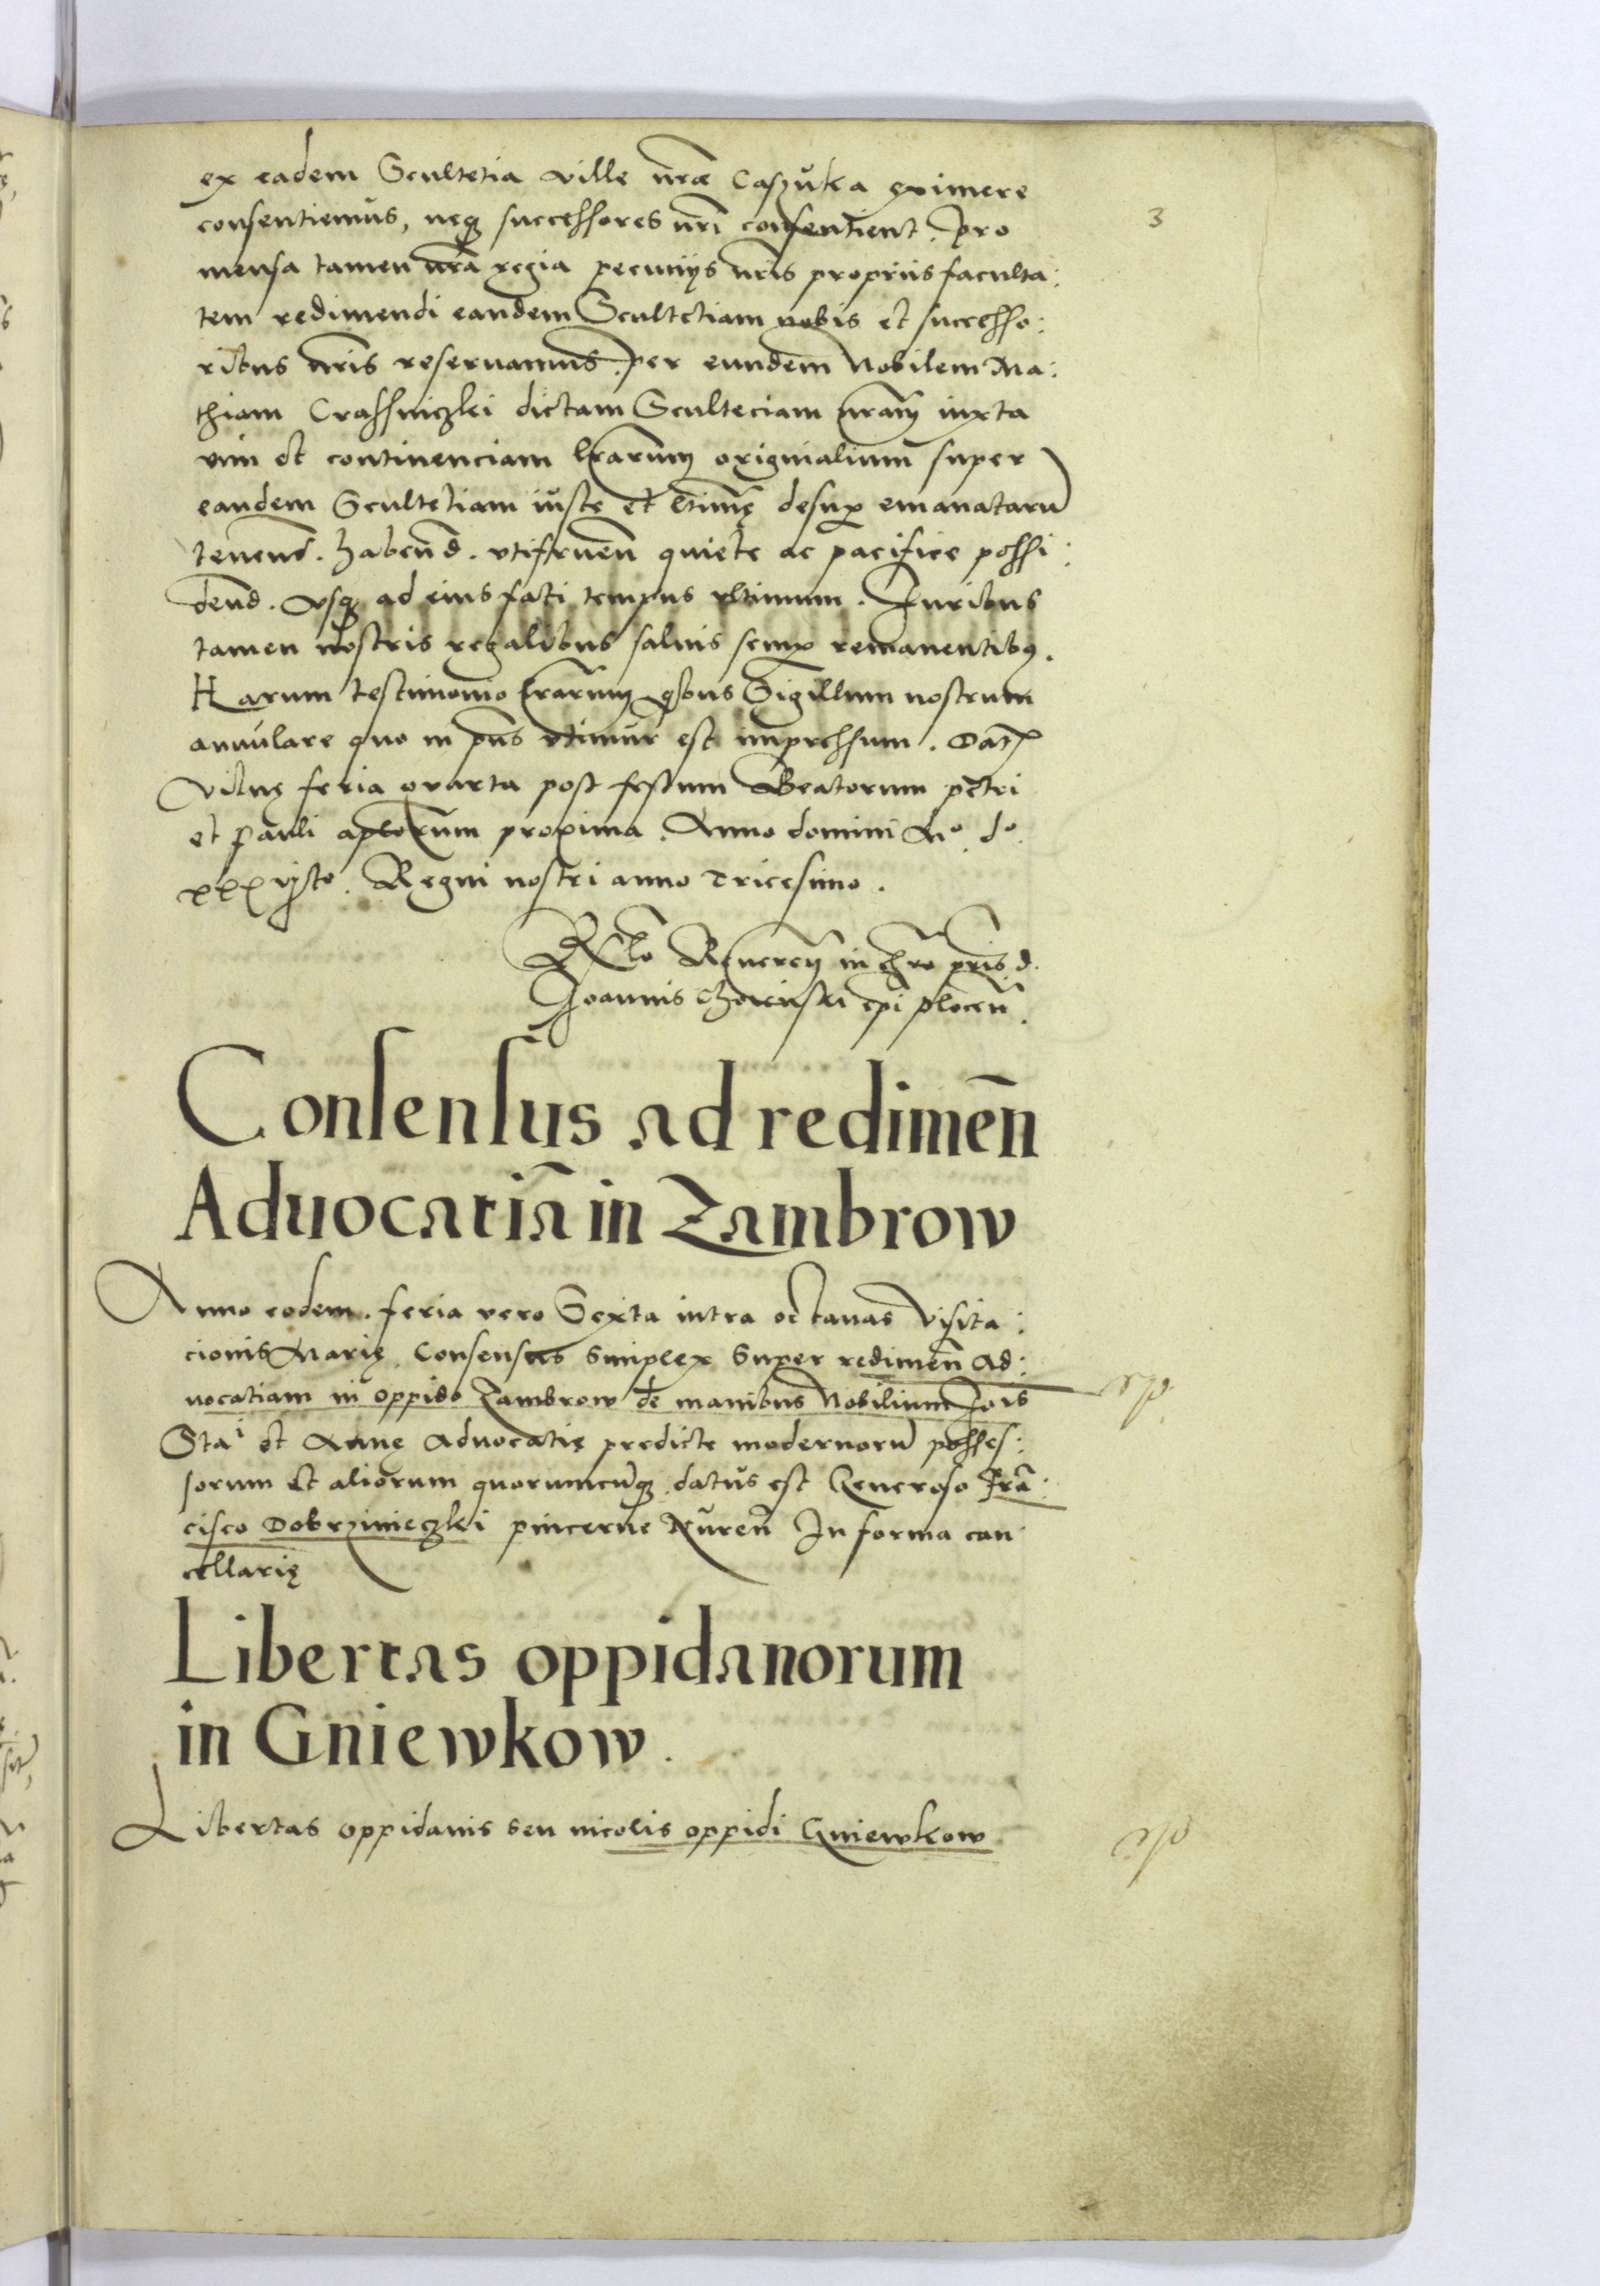 ex eadem Scultetia ville nr̄æ Caszuka eximere
consentiemus, neqʒ successores nr̄i consentient. Pro
3
mensa tamen nr̄a regia pecuniys nr̄is propriis faculta:
tem redimendi eandem Scultetiam nobis et successo:
ribus nr̄is reservamus. per eundem Nobilem Ma:
thiam Crassniczki dictam Sculteciam nr̄am iuxta
vim et continenciam lr̄arum originalium super
eandem Scultetiam iuste et ltīmę desup emanatarū
tenend̄. habend̄. vtifruen̄ quiete ac pacifice possi:
dend̄. vsqʒ ad eius fati tempus vltimum. Iuribus
tamen nostris regalibus salvis semp remanentibꝯ.
Harum testimonio lr̄arum qbus Sigillum nostrum
annulare quo in pn̄s vtimur est impressum. Dat̄
Vilnę feria quarta post festum Beatorum petri
et Pauli aplorum proxima. Anno domini Mº. dº.
xxxvjsto. Regni nostri anno Tricesimo.
Rlo Reveren̄ in chr̄o pr̄is d.
Joannis Choienski ep̄i plocen̄.
Consensus ad redimen̄
Advocatiā in Zambrow
Anno eodem. feria vero Sexta intra octavas Visita:
cionis Marię. Consensus simplex super redimen̄ ad:
vocatiam in oppido Zambrow de manibus Nobilium Jois
Stai et Annę advocatię predicte modernorū posses:
sorum et aliorum quorumcūqʒ datus est Generoso Frā:
cisco Dobrzinieczki pincerne Nuren̄ In forma can
cellarię
Libertas oppidanorum
in Gniewkow.
Libertas oppidanis seu incolis oppidi Gniewkow